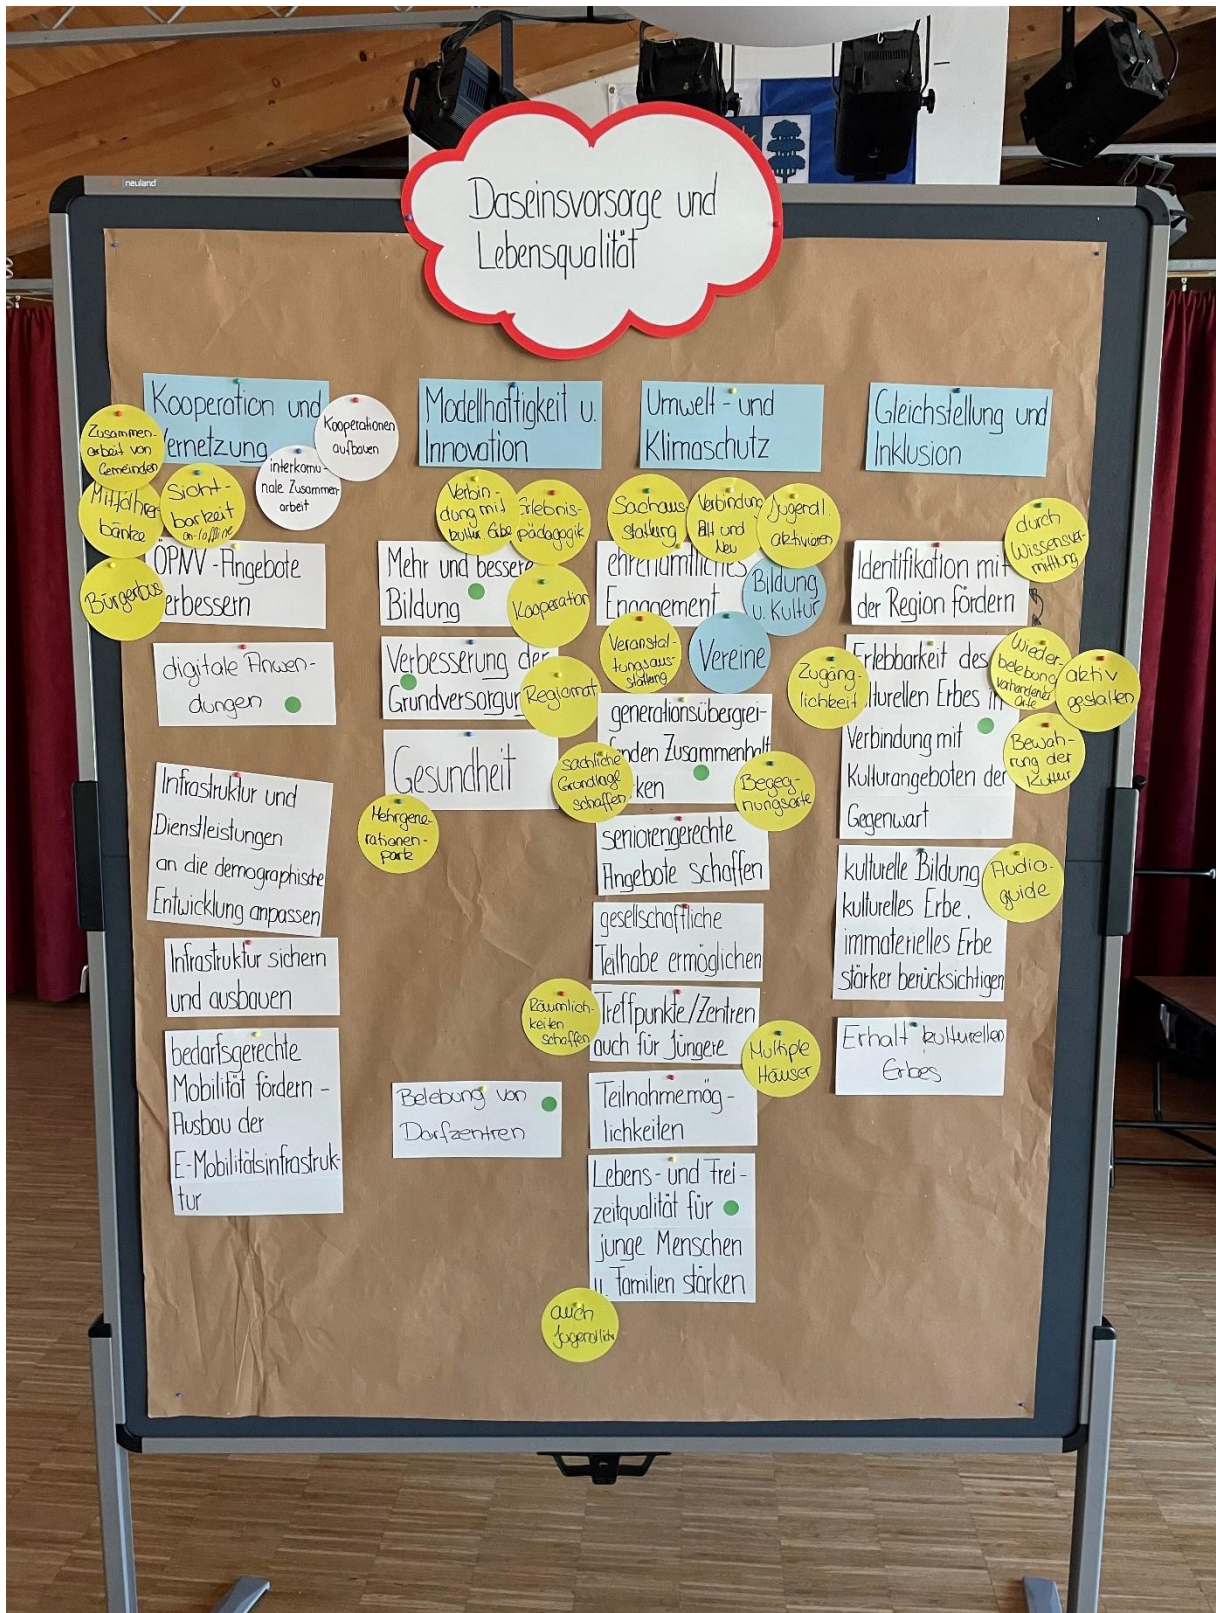 neuland
Daseinsvorsorge und
Lebensqualität
Kooperation und
Vernetzung
Kooperationen
aufbauen
interkomu-
nale Zusammen-
arbeit
Zusammen-
arbeit von
Gemeinden
Mitfahrer-
bänke
Sicht-
barkeit
on-/offline
Bürgerbus
ÖPNV-Angebote
verbessern
digitale Anwen-
dungen
Infrastruktur und
Dienstleistungen
an die demographische
Entwicklung anpassen
Infrastruktur sichern
und ausbauen
bedarfsgerechte
Mobilität fördern -
Ausbau der
E-Mobilitätsinfrastruk-
tur
Modellhaftigkeit u.
Innovation
Verbin-
dung mit
kultur. Erbe
Erlebnis-
pädagogik
Mehr und bessere
Bildung
Kooperation
Verbesserung der
Grundversorgung
Regiomat
Gesundheit
Mehrgene-
rationen-
parks
Belebung von
Dorfzentren
Umwelt- und
Klimaschutz
Sachaus-
stattung
Verbindung
Alt und
Neu
Jugendl.
aktivieren
ehrenamtliches
Engagement
Bildung
u. Kultur
Veranstal-
tungsaus-
stattung
Vereine
generationsübergrei-
fenden Zusammenhalt
ken
sachliche
Grundlage
schaffen
Begeg-
nungsorte
seniorengerechte
Angebote schaffen
gesellschaftliche
Teilhabe ermöglichen
Räumlich-
keiten
schaffen
Treffpunkte/Zentren
auch für Jüngere
Multiple
Häuser
Teilnahmemög-
lichkeiten
Lebens- und Frei-
zeitqualität für
junge Menschen
u. Familien stärken
auch
Jugendliche
Gleichstellung und
Inklusion
durch
Wissensver-
mittlung
Identifikation mit
der Region fördern
Zugäng-
lichkeit
Erlebbarkeit des
kulturellen Erbes in
Verbindung mit
Kulturangeboten der
Gegenwart
Wieder-
belebung
vorhandener
Orte
aktiv
gestalten
Bewah-
rung der
Kultur
kulturelle Bildung
kulturelles Erbe,
immaterielles Erbe
stärker berücksichtigen
Audio-
guide
Erhalt kulturellen
Erbes